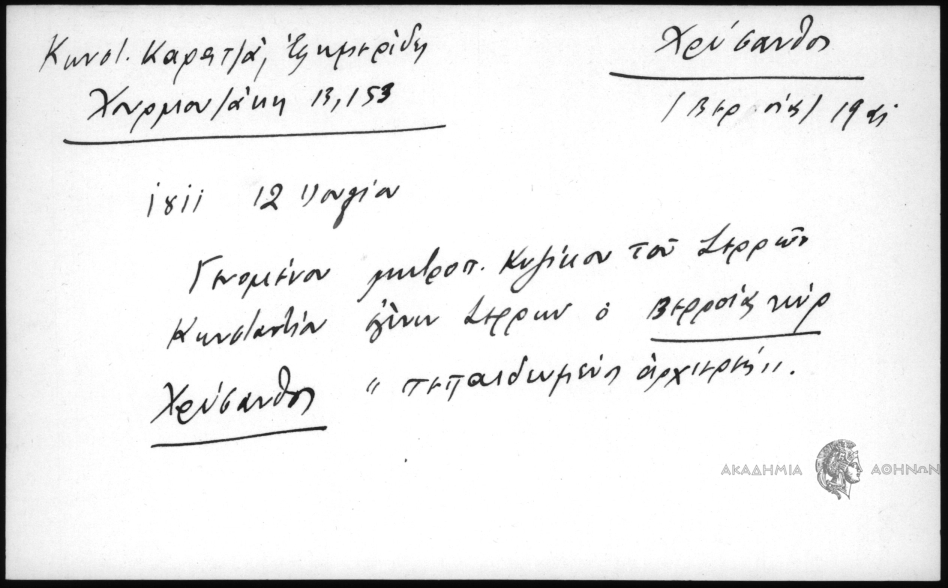 Κωνστ. Καρατζᾶ, Ἐφημερίδη
Χουρμουζάκη ΙΒ, 153
Χρύσανθος
(Βερροίας) 19 αι
1811 12 Ἰουλίου
Γενομένου μητροπ. Κυζίκου τοῦ Σερρῶν
Κωνσταντίου ἐγένετο Σερρῶν ὁ Βερροίας κύρ
Χρύσανθος "πεπαιδευμένος ἀρχιερεύς".
ΑΚΑΔΗΜΙΑ ΑΘΗΝΩΝ